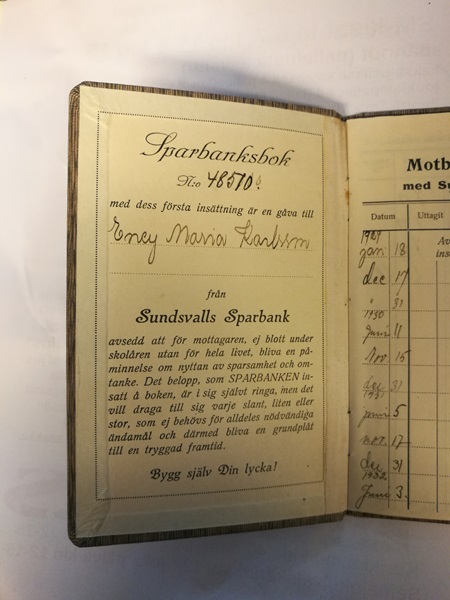 Sparbanksbok
N:o 48510
med dess första insättning är en gåva till
Ency Maria Karlsson
från
Sundsvalls Sparbank
avsedd att för mottagaren, ej blott under
skolåren utan för hela livet, bliva en på-
minnelse om nyttan av sparsamhet och om-
tanke. Det belopp, som SPARBANKEN in-
satt å boken, är i sig självt ringa, men det
vill draga till sig varje slant, liten eller
stor, som ej behövs för alldeles nödvändiga
ändamål och därmed bliva en grundplåt
till en tryggad framtid.
Bygg själv Din lycka!
Motb
med Su
Datum Uttagit
Av
ins
jan 18
dec 17
" 31
1930
Juni 11
Nov. 15
dec 31
1931
juni 5
nov. 17
Dec 31
1932
Juni 3